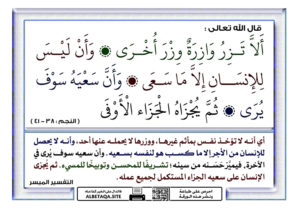 قال الله تعالى :
أَلَّا تَزِرُ وَازِرَةٌ وِزْرَ أُخْرَىٰ وَأَنْ لَيْسَ
لِلْإِنسَانِ إِلَّا مَا سَعَىٰ وَأَنَّ سَعْيَهُ سَوْفَ
يُرَىٰ ثُمَّ يُجْزَاهُ الْجَزَاءَ الْأَوْفَىٰ
(النجم: ٣٨ - ٤١)
أي أنه لا تؤخذ نفس بمأثم غيرها، ووزرها لا يحمله عنها أحد، وأنه لا يحصل
للإنسان من الأجر إلا ما كسب هو لنفسه بسعيه. وأن سعيه سوف يُرى في
الآخرة، فيميَّز حَسَنه من سيئه؛ تشريفًا للمحسن وتوبيخًا للمسيء. ثم يُجزى
الإنسان على سعيه الجزاء المستكمل لجميع عمله.
التفسير الميسر
ALBETAQA.SITE
احرص على طباعة
ونشر هذه الورقة